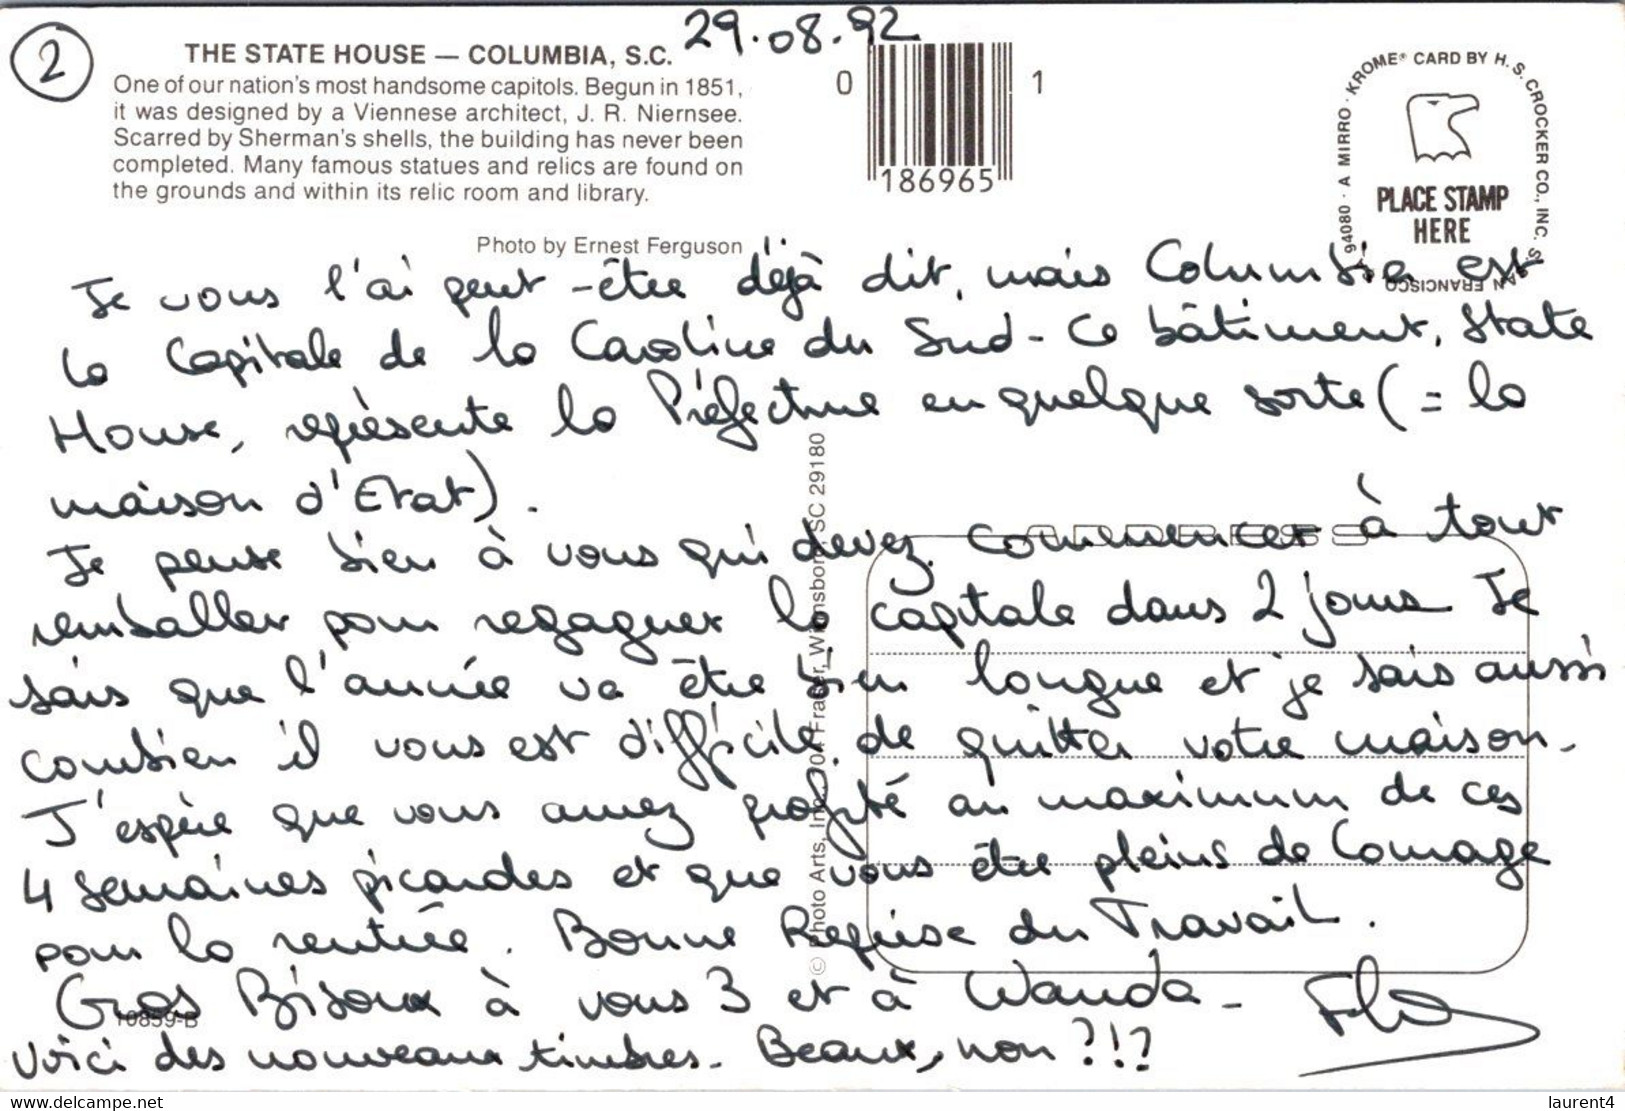 2
29.08.92
THE STATE HOUSE — COLUMBIA, S.C.
One of our nation's most handsome capitols. Begun in 1851,
it was designed by a Viennese architect, J. R. Niernsee.
Scarred by Sherman's shells, the building has never been
completed. Many famous statues and relics are found on
the grounds and within its relic room and library.
Photo by Ernest Ferguson
0 186965 1
KROME® CARD BY H. S. CROCKER CO., INC. SAN FRANCISCO 94080 · A MIRRO ·
PLACE STAMP
HERE
Je vous l'ai peut-être déjà dit, mais Columbia est
la Capitale de la Caroline du Sud - Ce bâtiment, State
House, représente la Préfecture en quelque sorte (= la
maison d'Etat).
Je pense bien à vous qui devez commencer à tout
remballer pour regagner la capitale dans 2 jours Je
sais que l'année va être bien longue et je sais aussi
combien il vous est difficile de quitter votre maison.
J'espère que vous avez profité au maximum de ces
4 semaines picardes et que vous êtes pleins de Courage
pour la rentrée. Bonne Reprise du Travail.
Gros Bisoux à vous 3 et à Wanda -
Voici des nouveaux timbres. Beaux, non ?!?
Flo
ADDRESS
© Photo Arts, Inc., Fraser, Winnsboro, SC 29180
10859-B
www.delcampe.net
laurent4